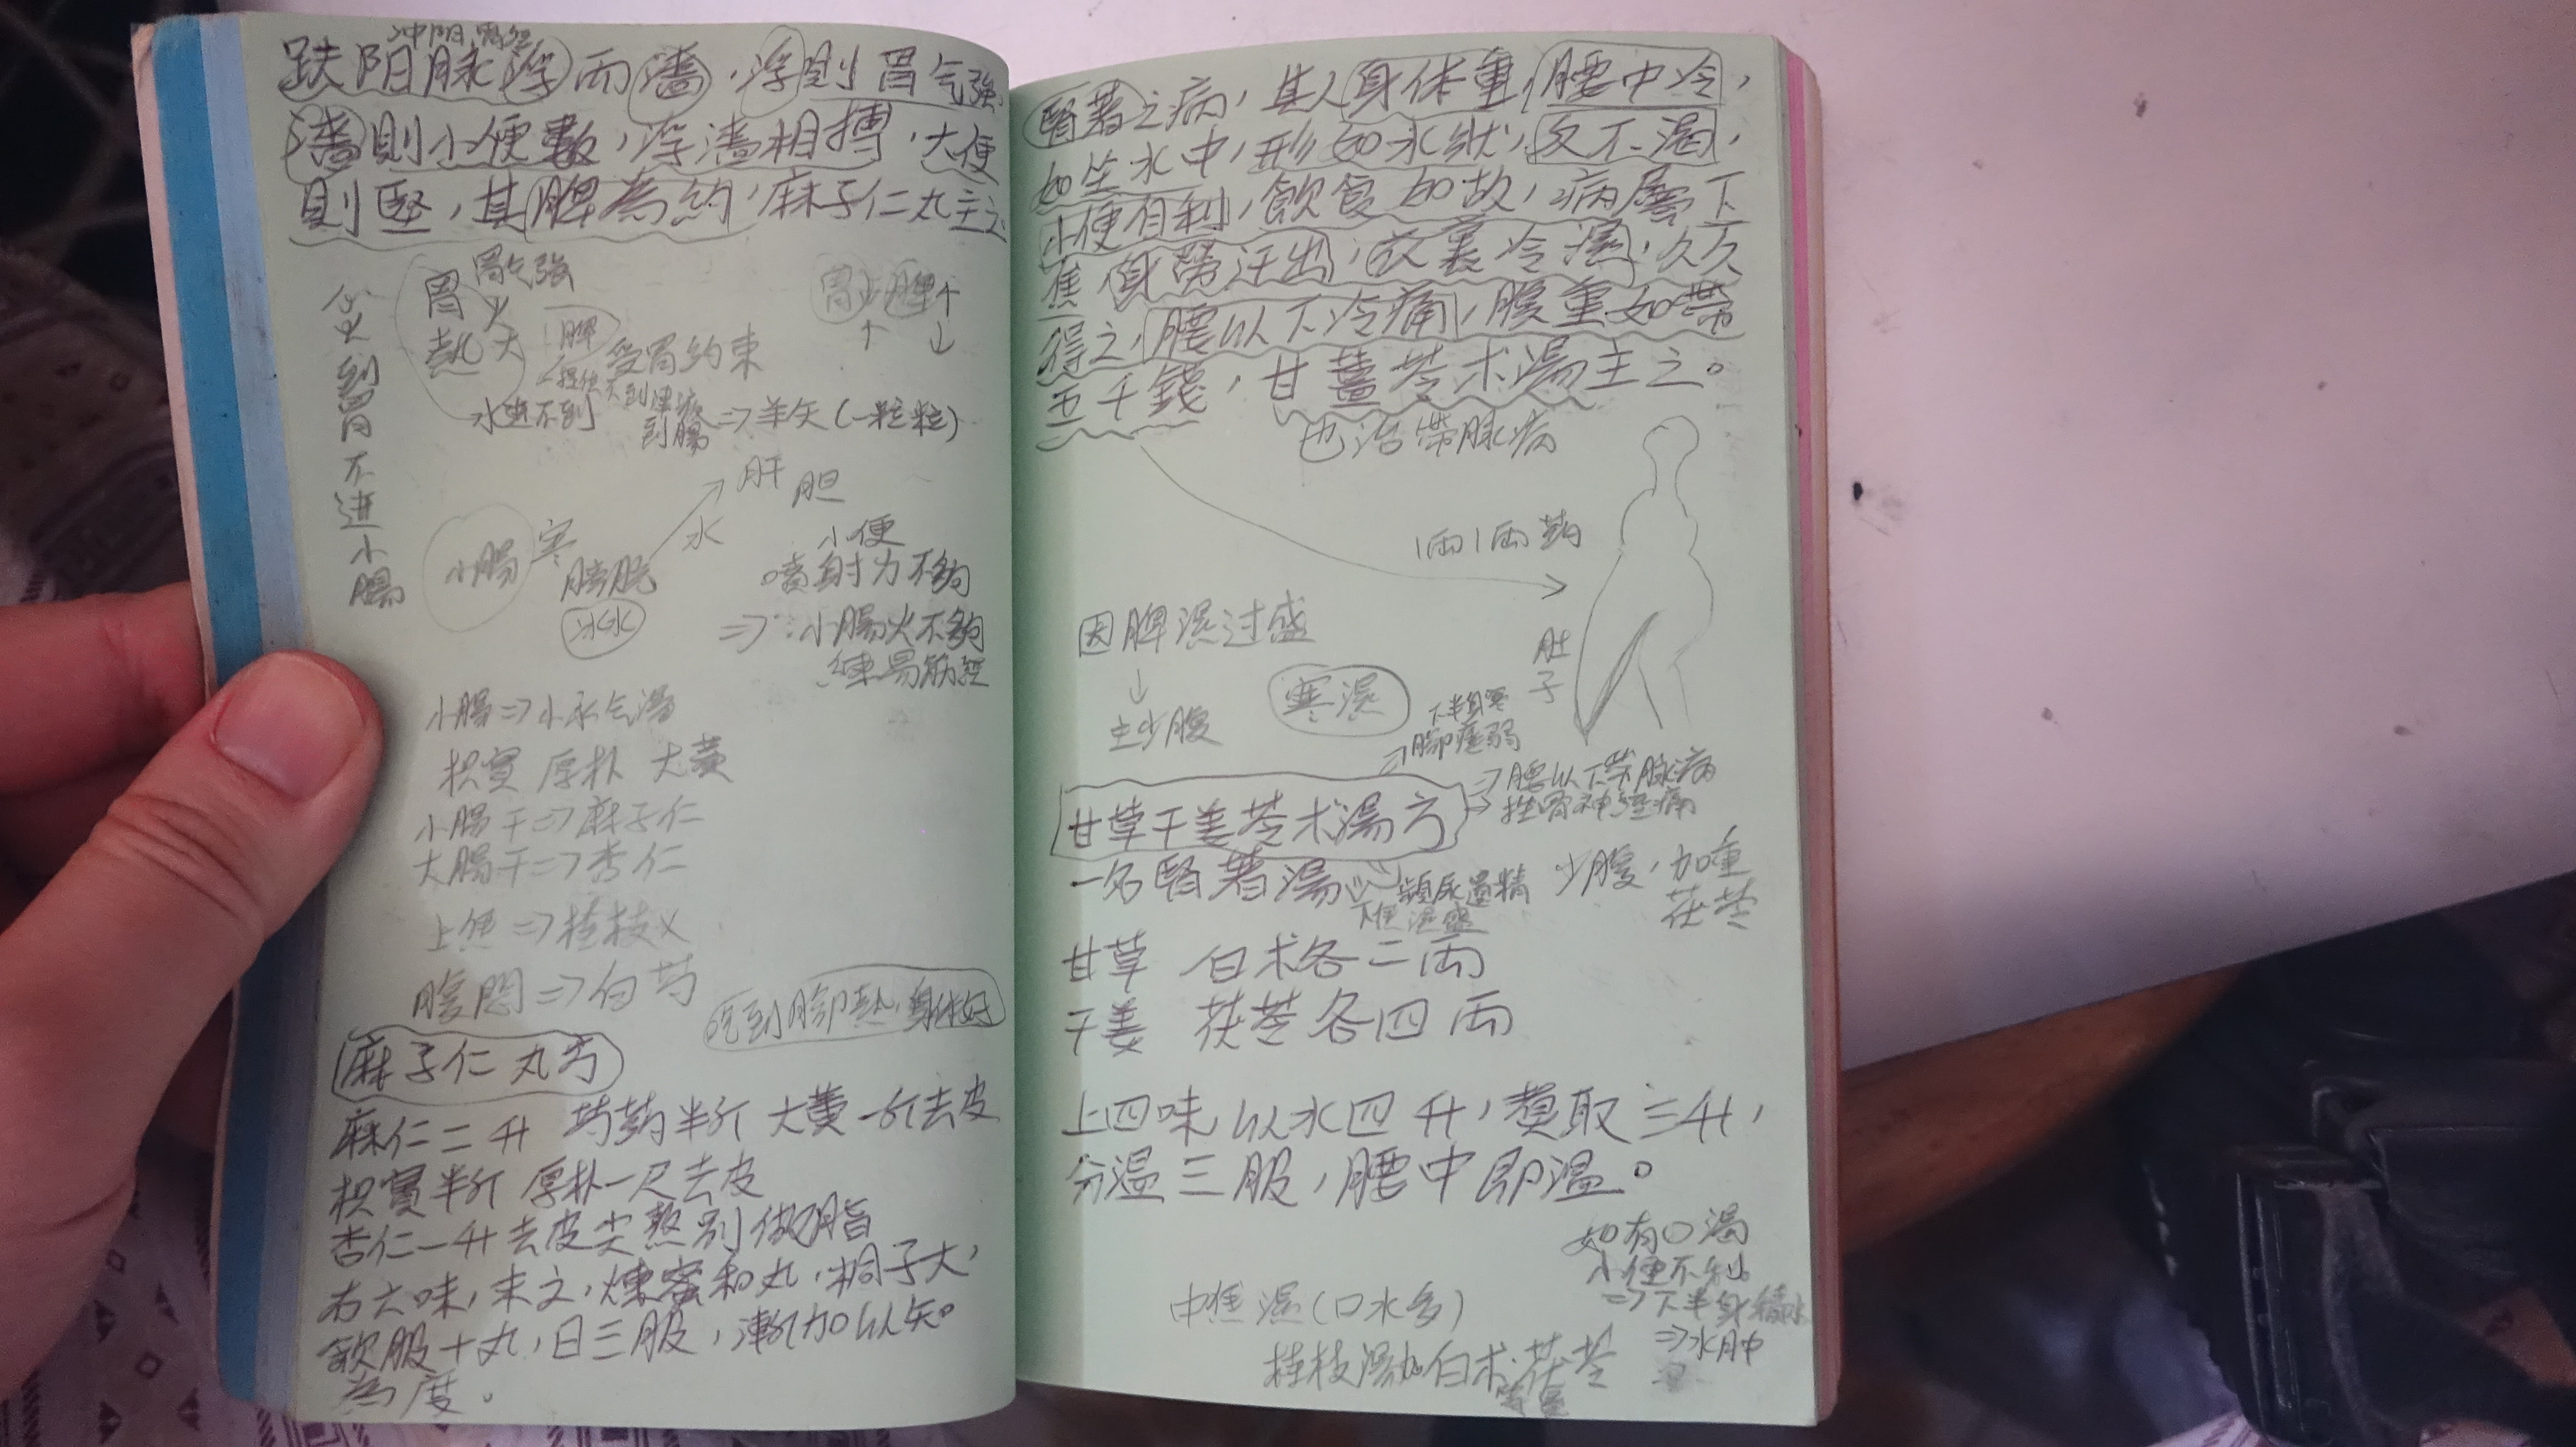 冲阳
趺阳脉浮而濇，浮則胃气強
濇則小便數，浮濇相搏，大便
則堅，其脾為約，麻子仁丸主之
心火到胃不进小腸
胃气強
胃 火
熱 大
脾
受胃約束
胃↓ 脾↑
↑ ↓
水进不到
到腸
⇒羊矢(一粒粒)
肝 胆
水
小腸 寒
膀胱
冰水
小便
喷射力不夠
⇒∵小腸火不夠
練易筋經
小腸⇒小承气湯
枳實 厚朴 大黄
小腸干⇒麻子仁
大腸干⇒杏仁
上焦⇒桂枝
腹悶⇒白芍
吃到腳熱，身体好
麻子仁丸方
麻仁二升 芍药半斤 大黄一斤去皮
枳實半斤 厚朴一尺去皮
杏仁一升去皮尖熬別做脂
右六味，末之，煉蜜和丸，桐子大，
飲服十丸，日三服，漸加以知
為度。
腎著之病，其人身体重，腰中冷，
如坐水中，形如水狀，反不渴，
小便有利，飲食如故，病屬下
焦 身勞汗出，衣裏冷濕，久久
得之，腰以下冷痛，腹重如带
五千錢，甘薑苓术湯主之。
也治带脉病
1両1両药
肚子
因脾濕过盛
↓
主少腹
寒濕
下半身寒
⇒腳痿弱
⇒腰以下带脉病
→挫骨神經痛
甘草干姜苓术湯方
一名腎著湯
頻尿遺精
下焦濕盛
少腹，加重
茯苓
甘草 白术各二両
干姜 茯苓各四両
上四味，以水四升，煮取三升，
分温三服，腰中即温。
如有口渴
小便不利
⇒下半身積水
⇒水肿
中焦濕(口水多)
桂枝湯加白术、茯苓
等量